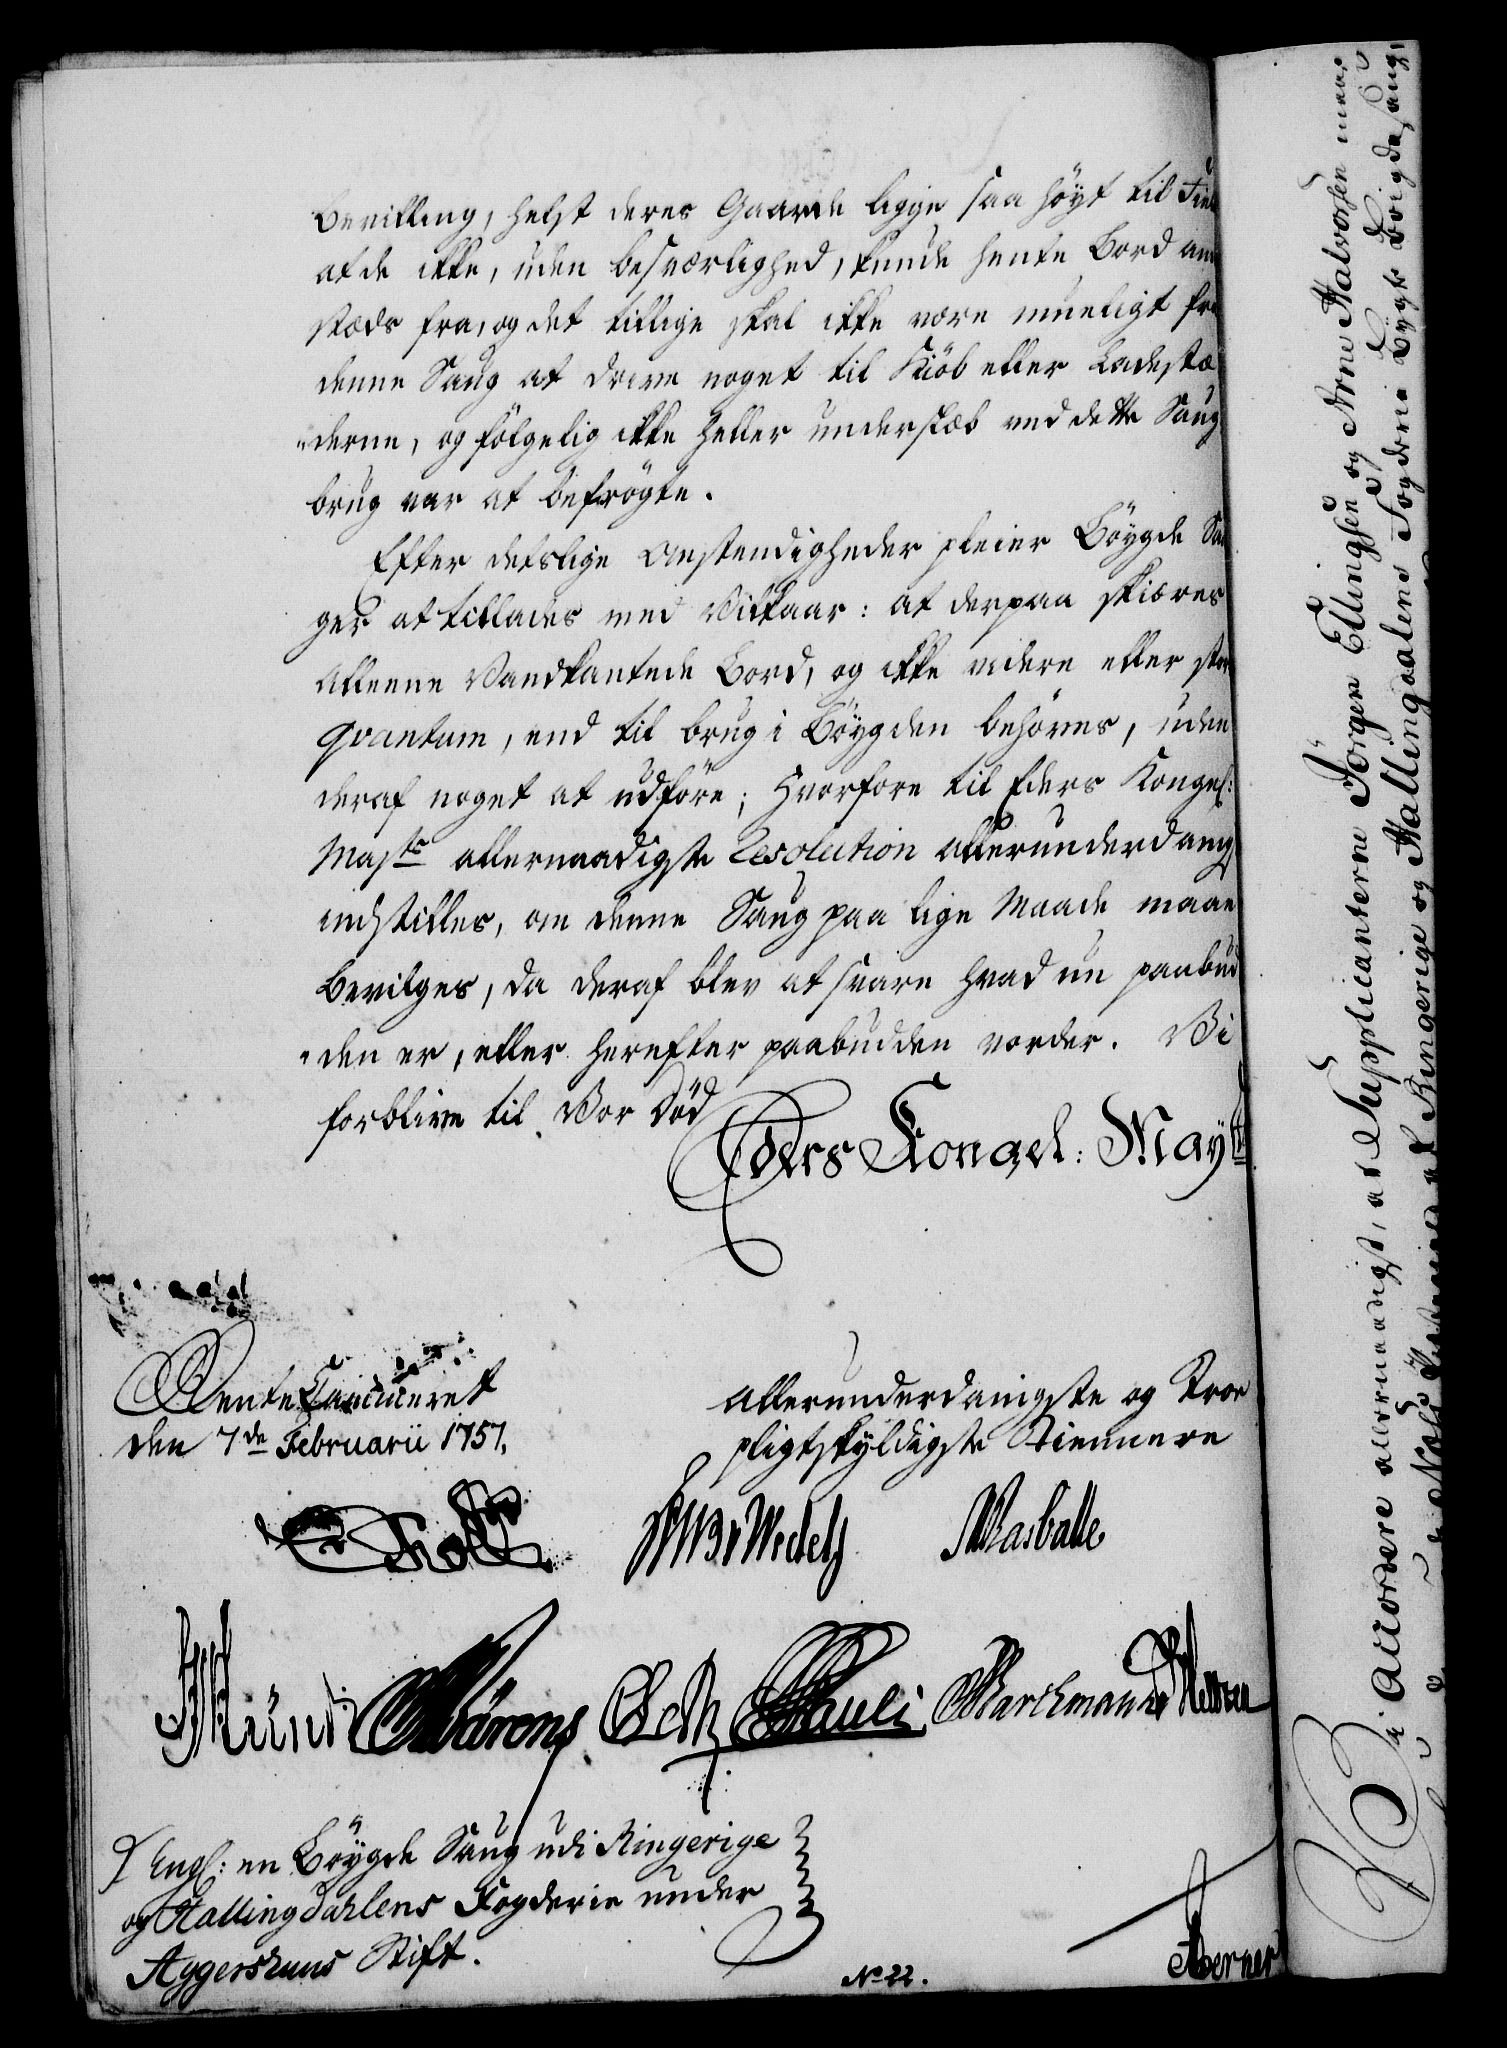 Bevilling, helst deres Gaarde ligge saa höyt til Field
at de ikke, uden besværlighed, kunde hente Bord an
stæds fra, og det tillige skal ikke være mueligt fra
denne Saug at drive noget til Kiöb eller Ladestæ
derne, og fölgelig ikke heller underslæb ved dette Saug
brug var at befrögte.
Efter deslige Omstendigheder pleier Böygde Sau
ger at tillades med Vilkaar: at derpaa skiæres
alleene Vandkantede Bord, og ikke videre eller stör
qvantum, end til brug i Böygden behöves, uden
deraf noget at udföre; Hvorfore til Eders Kongel:
Maj:ts allernaadigste Resolution allerunderdanig
indstilles, om denne Saug paa lige Maade maae
bevilges, da deraf blev at svare hvad nu paabud
den er, eller herefter paabudden vorder. Vi
forblive til Vor Död
Eders Kongel: Mayts
Rente Cammeret
den 7de Februarii 1757.
allerunderdanigste og Troe
pligtskyldigste Tiennere
Holst
Wedels Rasballe
Münt Mörons Pauli Marckmann
Angl: en Böygde Saug udi Ringerige
og Hallingdahlens Fogderie under
Aggershuus Stift.
No 22.
Berner
Vi accordere allernaadigst, at Supplicanterne Jörgen Ellingsen og Arne Halvorsen maae
Ringerige og Hallingdalens Fogderie bÿge Böigde Saug,